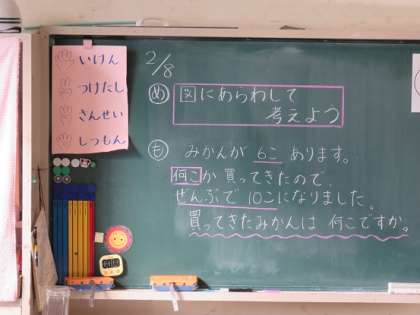 いけん
つけたし
さんせい
しつもん。
2/8
め 図にあらわして
考えよう
も みかんが 6こ あります。
何こか 買ってきたので、
ぜんぶで 10こになりました。
買ってきたみかんは 何こですか。